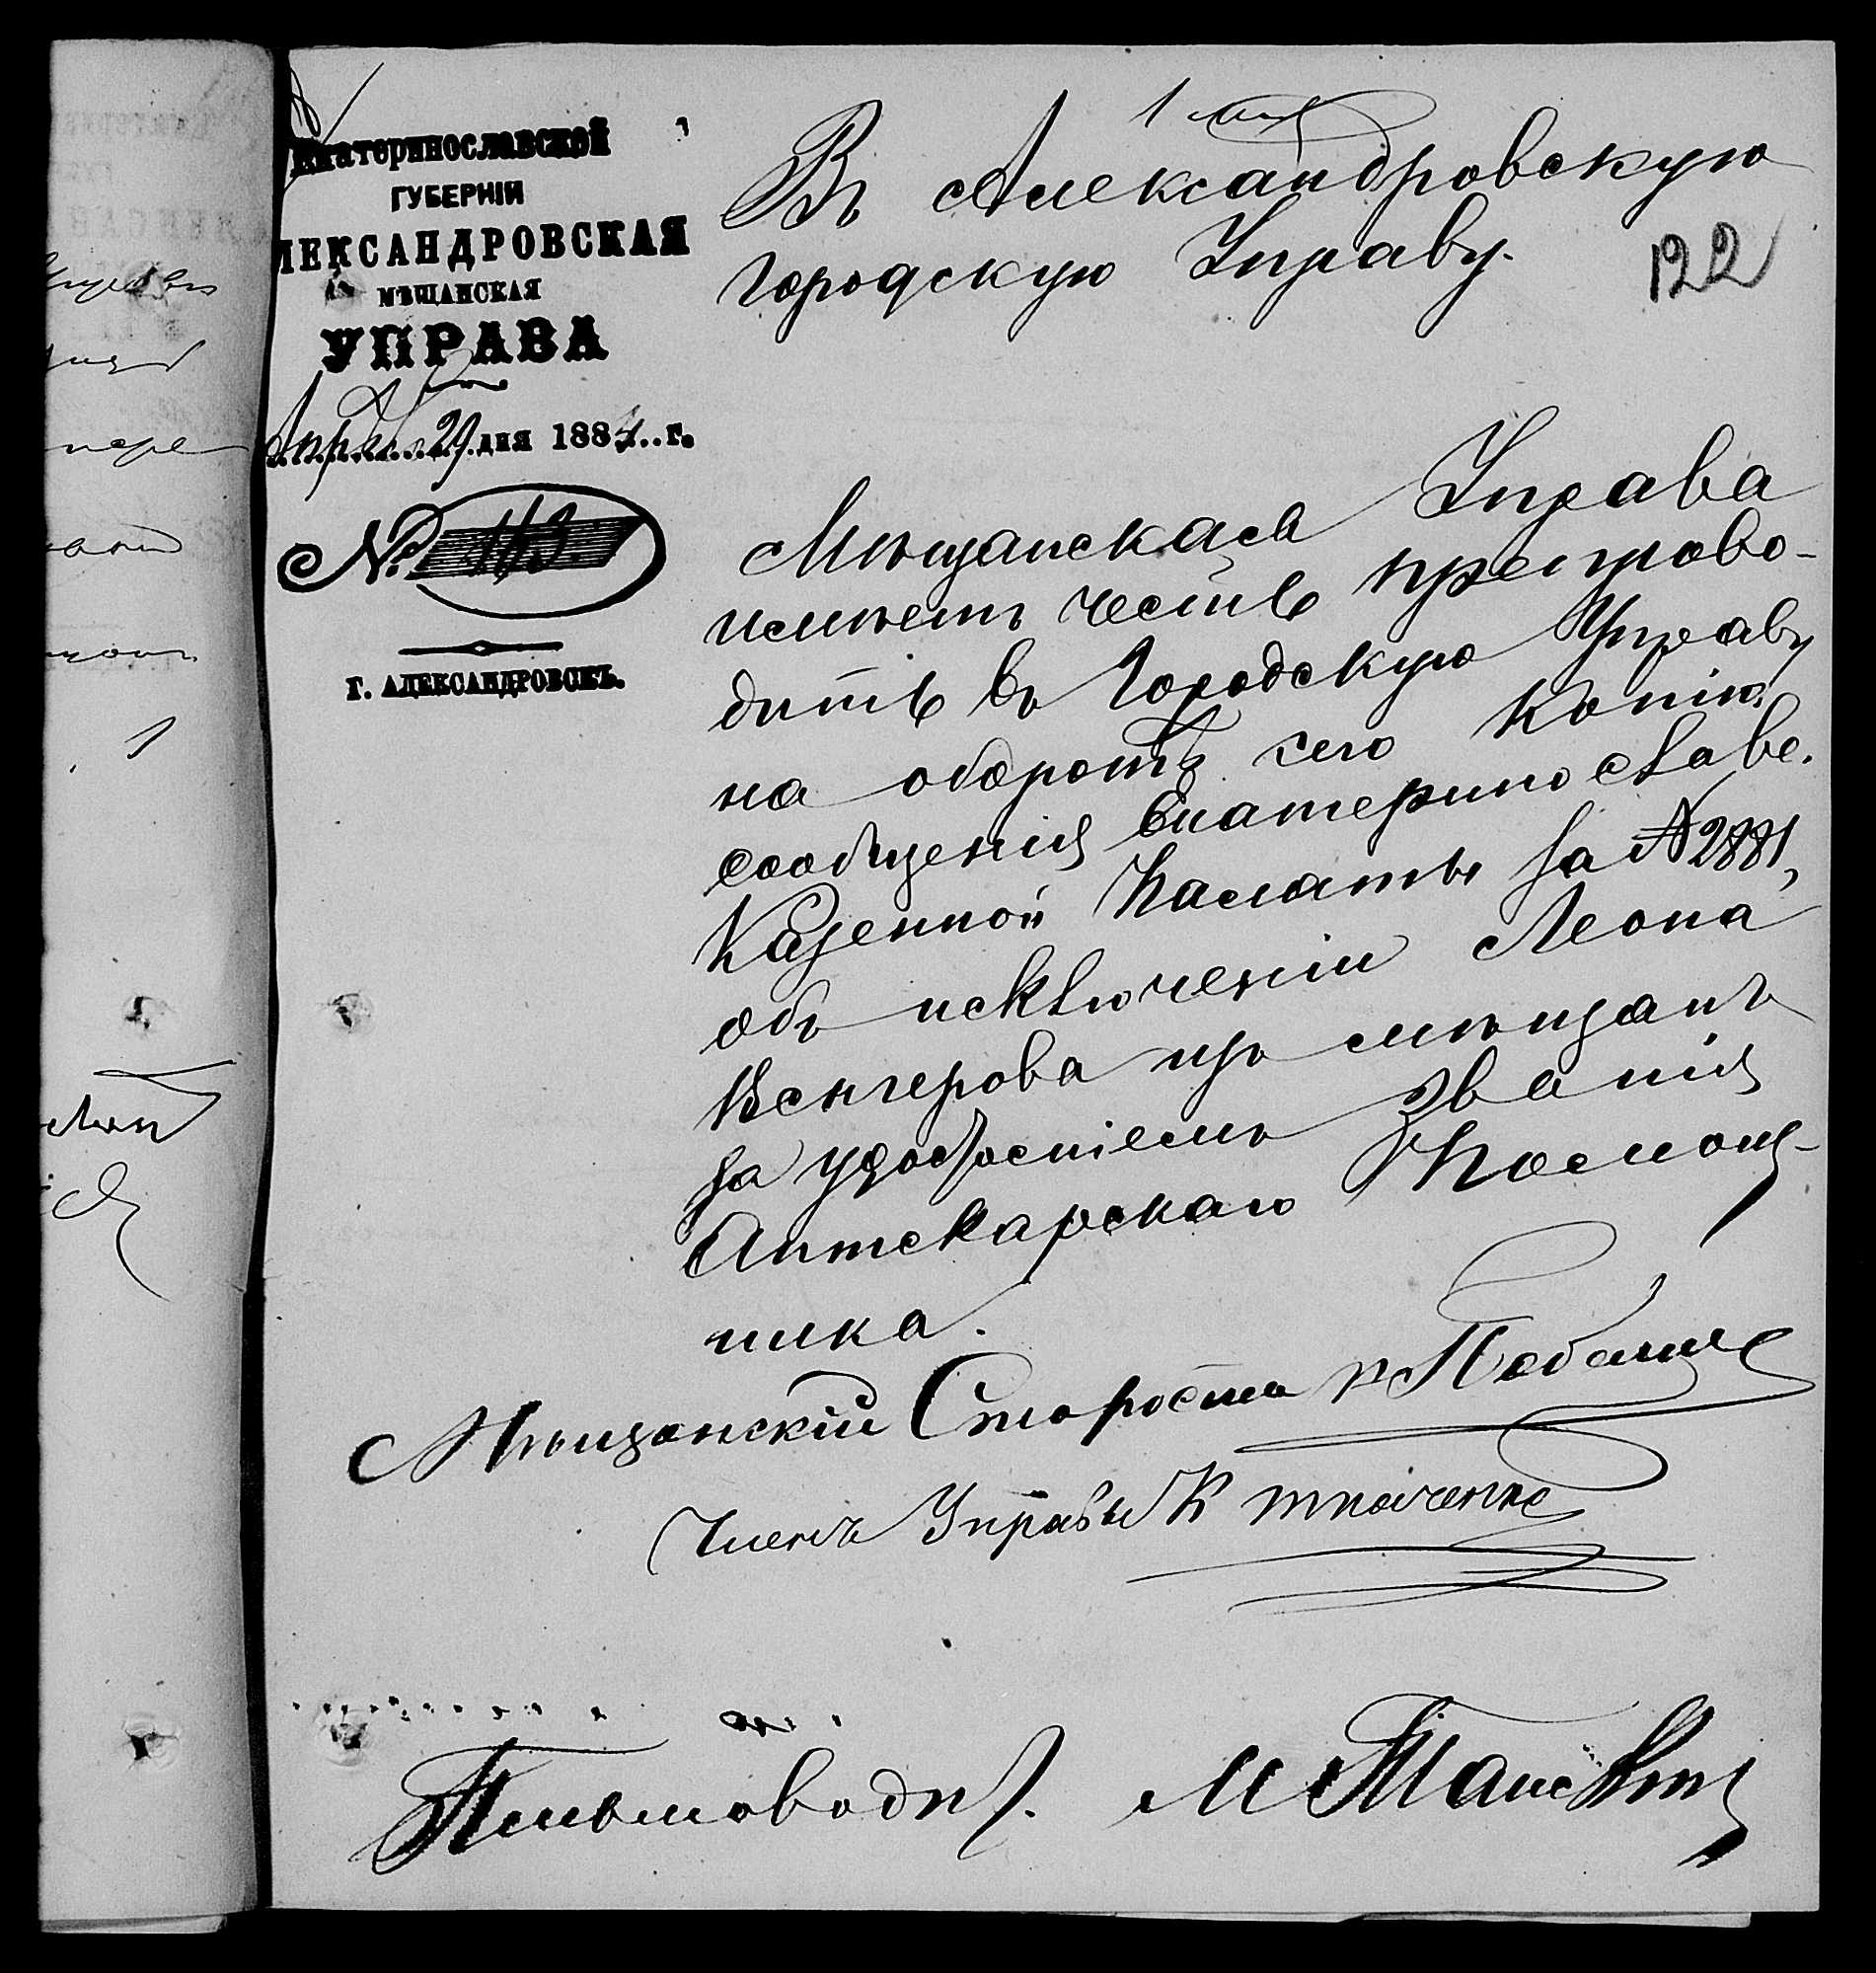 Екатеринославской
ГУБЕРНІИ
ЛЕКСАНДРОВСКАЯ
МѢЩАНСКАЯ
УПРАВА
Апрѣля 29 дня 1884 г.
№ 163.
Г. АЛЕКСАНДРОВСКЪ.
Въ Александровскую
Городскую Управу.
122
Мѣщанская Управа
имѣетъ честь препрово-
дить въ Городскую Управу
на оборотѣ сего копію
сообщенія Екатеринославс.
Казенной Палаты за № 2881,
объ исключеніи Леона
Венгерова изъ мѣщанъ
за удостоеніемъ званія
Аптекарскаго Помощ-
ника.
Мѣщанскій Староста
Членъ Управы К Ткаченко
Письмоводи